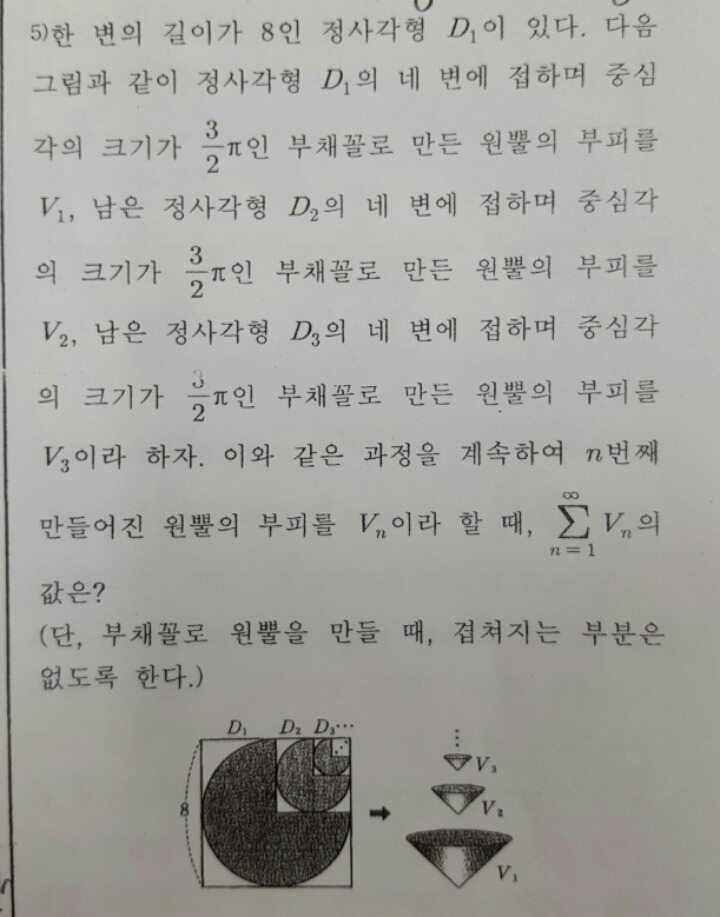 5)한 변의 길이가 8인 정사각형 D₁이 있다. 다음
그림과 같이 정사각형 D₁의 네 변에 접하며 중심
각의 크기가 3/2 π인 부채꼴로 만든 원뿔의 부피를
V₁, 남은 정사각형 D₂의 네 변에 접하며 중심각
의 크기가 3/2 π인 부채꼴로 만든 원뿔의 부피를
V₂, 남은 정사각형 D₃의 네 변에 접하며 중심각
의 크기가 3/2 π인 부채꼴로 만든 원뿔의 부피를
V₃이라 하자. 이와 같은 과정을 계속하여 n번째
만들어진 원뿔의 부피를 Vₙ이라 할 때, ∞ ∑ n=1 Vₙ의
값은?
(단, 부채꼴로 원뿔을 만들 때, 겹쳐지는 부분은
없도록 한다.)
D₁ D₂ D₃⋯
8
V₃
V₂
V₁